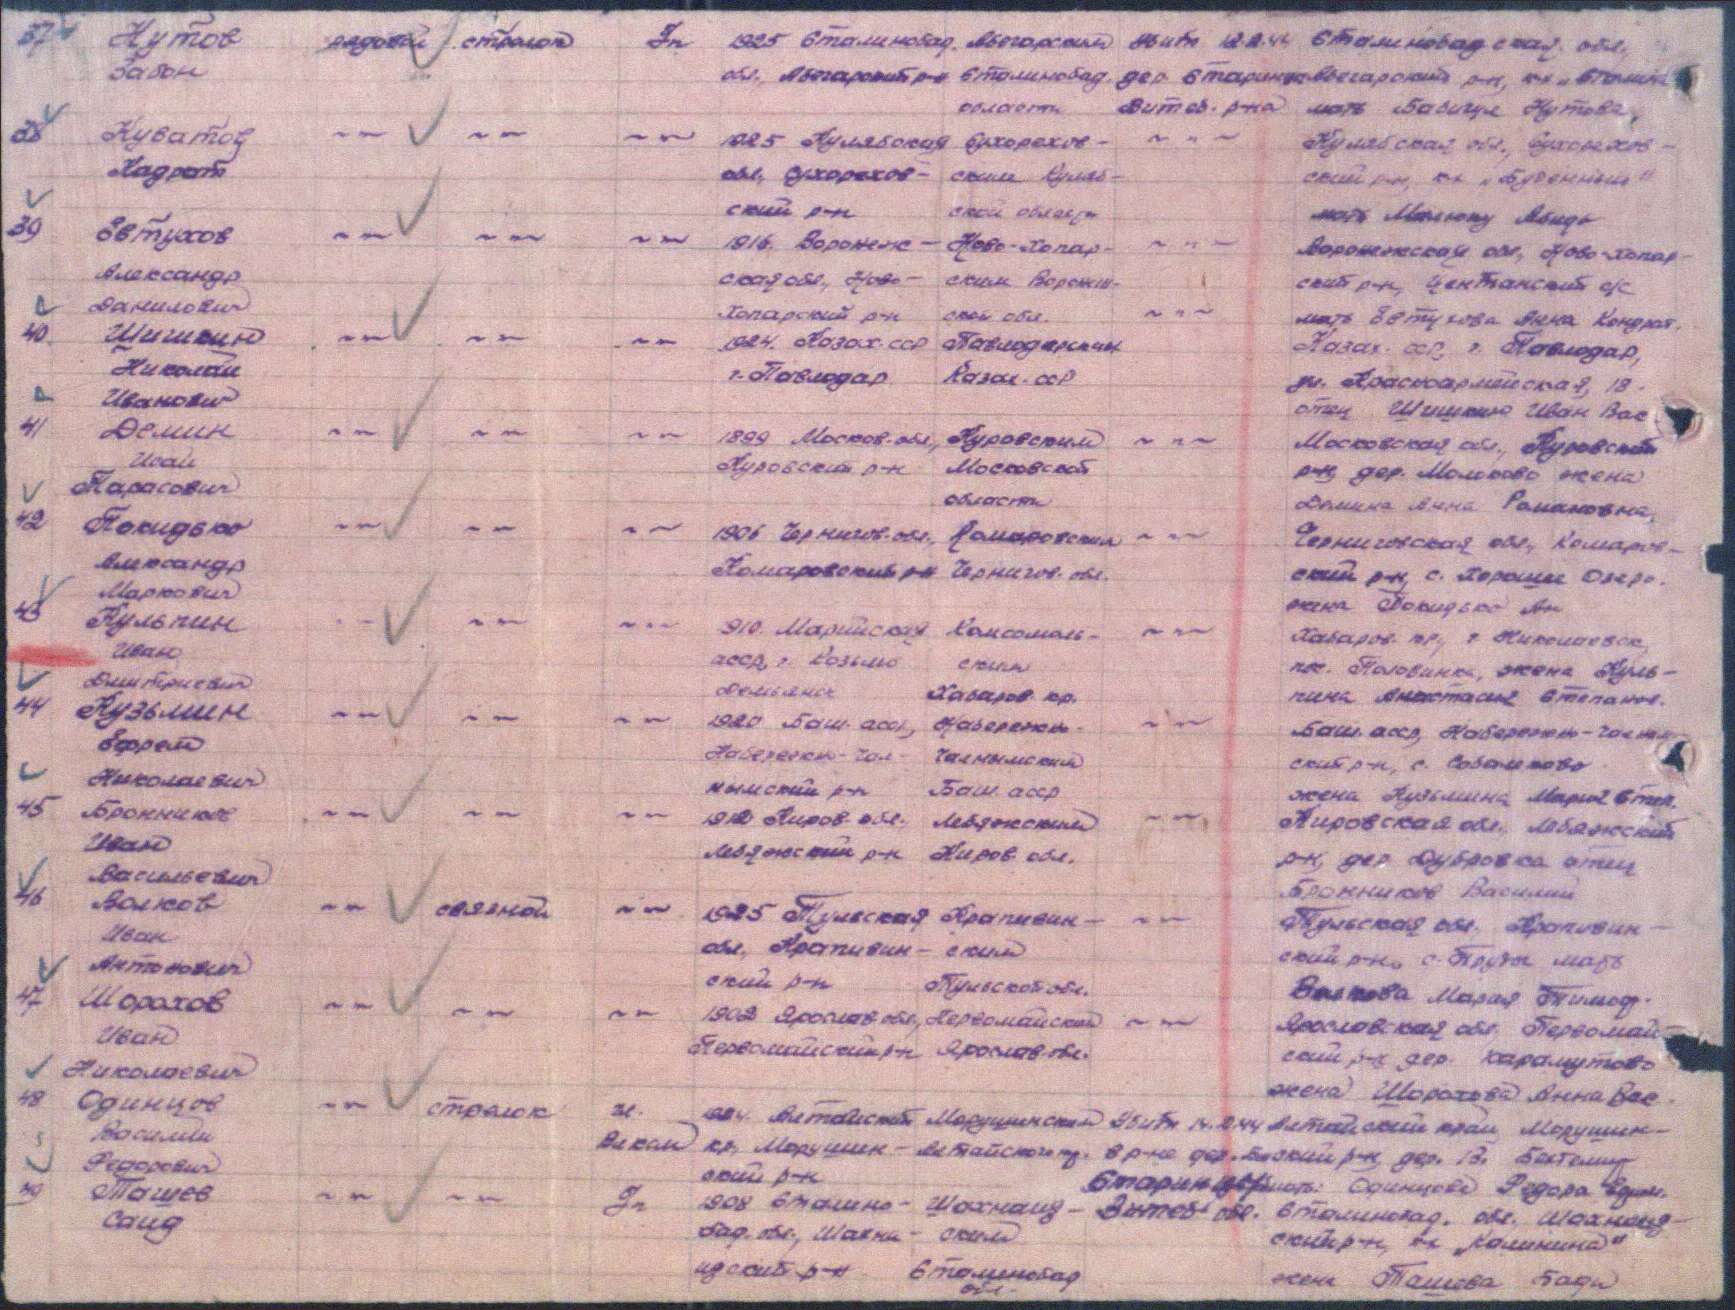 37 Кутов рядовой стрелок Гн 1925 Сталинобад. Авгарским Убит 12.2.44 Сталинобадская обл.,
Забон обл., Авгарский р-н Сталинобад. дер. Старинка Авгарский р-н, к-з „Сталин
области Витеб. р-на мать Кутова,
38 Куватов -"- -"- -"- 1925 Кулябская Сухорехов- -"- Кулябская обл., Сухорехов-
Кадрат обл., Сухорехов- ским Куляб- ский р-н, к-з „Буденный"
ский р-н ской области мать
39 Евтухов -"- -"- -"- 1916. Воронеж- Ново-Хопар- -"- Воронежская обл., Ново-Хопар-
Александр ская обл., Ново- ским Воронеж- ский р-н, с/с
Данилович Хопарский р-н ской обл. -"- мать Евтухова Анна Кондрат.
40 Шишкин -"- -"- -"- 1924. Казах. ССР Павлодарским Казах. ССР, г. Павлодар,
Николай г. Павлодар Казах. ССР ул. Красноармейская, 18.
Иванович отец Шишкин Иван Вас
41 Демин -"- -"- -"- 1899 Москов. обл., Куровским -"- Московская обл., Куровский
Исай Куровский р-н Московской р-н, дер. жена
Тарасович области Демина Анна Романовна,
42 Покидько -"- -"- -"- 1906 Чернигов. обл., Комаровским -"- Черниговская обл., Комаров-
Александр Комаровский р-н Чернигов. обл. ский р-н, с. Хороше Озеро.
Маркович жена Покидько Ан
43 Кульпин -"- -"- -"- 1910. Марийская Комсомоль- -"- Хабаров. кр., г. Николаевск,
Иван АССР, г. Козьмо ским пос. Половинка, жена Куль-
Дмитриевич Демьянск Хабаров. кр. пина Анастасия Степанов.
44 Кузьмин -"- -"- -"- 1920 Баш. АССР, Набережн- -"- Баш. АССР, Набережн-Челным
Ефрем Набережн-Чел- Челнымским ский р-н, с.
Николаевич нымский р-н Баш. АССР жена Кузьмина Мария Степ.
45 Бронников -"- -"- -"- Киров. обл. Лебяжским -"- Кировская обл., Лебяжский
Иван Лебяжский р-н Киров. обл. р-н, дер. Дубровка отец
Васильевич Бронников Василий
46 Волков -"- связной -"- 1925 Тульская Крапивин- -"- Тульская обл. Крапивин-
Иван обл., Крапивин- ским ский р-н, с. Пруды мать
Антонович ский р-н Тульской обл. Волкова Мария Тимоф.
47 Шорохов -"- -"- -"- 1902 Ярослав. обл., Первомайским -"- Ярославская обл. Первомай-
Иван Первомайский р-н Ярослав. обл. ский р-н, дер.
Николаевич жена Шорохова Анна Вас.
48 Одинцов -"- стрелок чл. Алтайский Марушинским Убит 14.2.44 Алтайский край Марушин-
Василий Влксм кр., Марушин- Алтайского кр. в р-не дер. ский р-н, дер.
Федорович ский р-н Старинка мать: Одинцова
49 Ташев -"- -"- Гн 1908 Сталино- Шахнаид- Витеб. обл. Сталинобад. обл. Шахнаид-
Саид бад. обл., Шахна- ским ский р-н, к-з „Калинина"
идский р-н Сталинобад жена Ташева
обл.